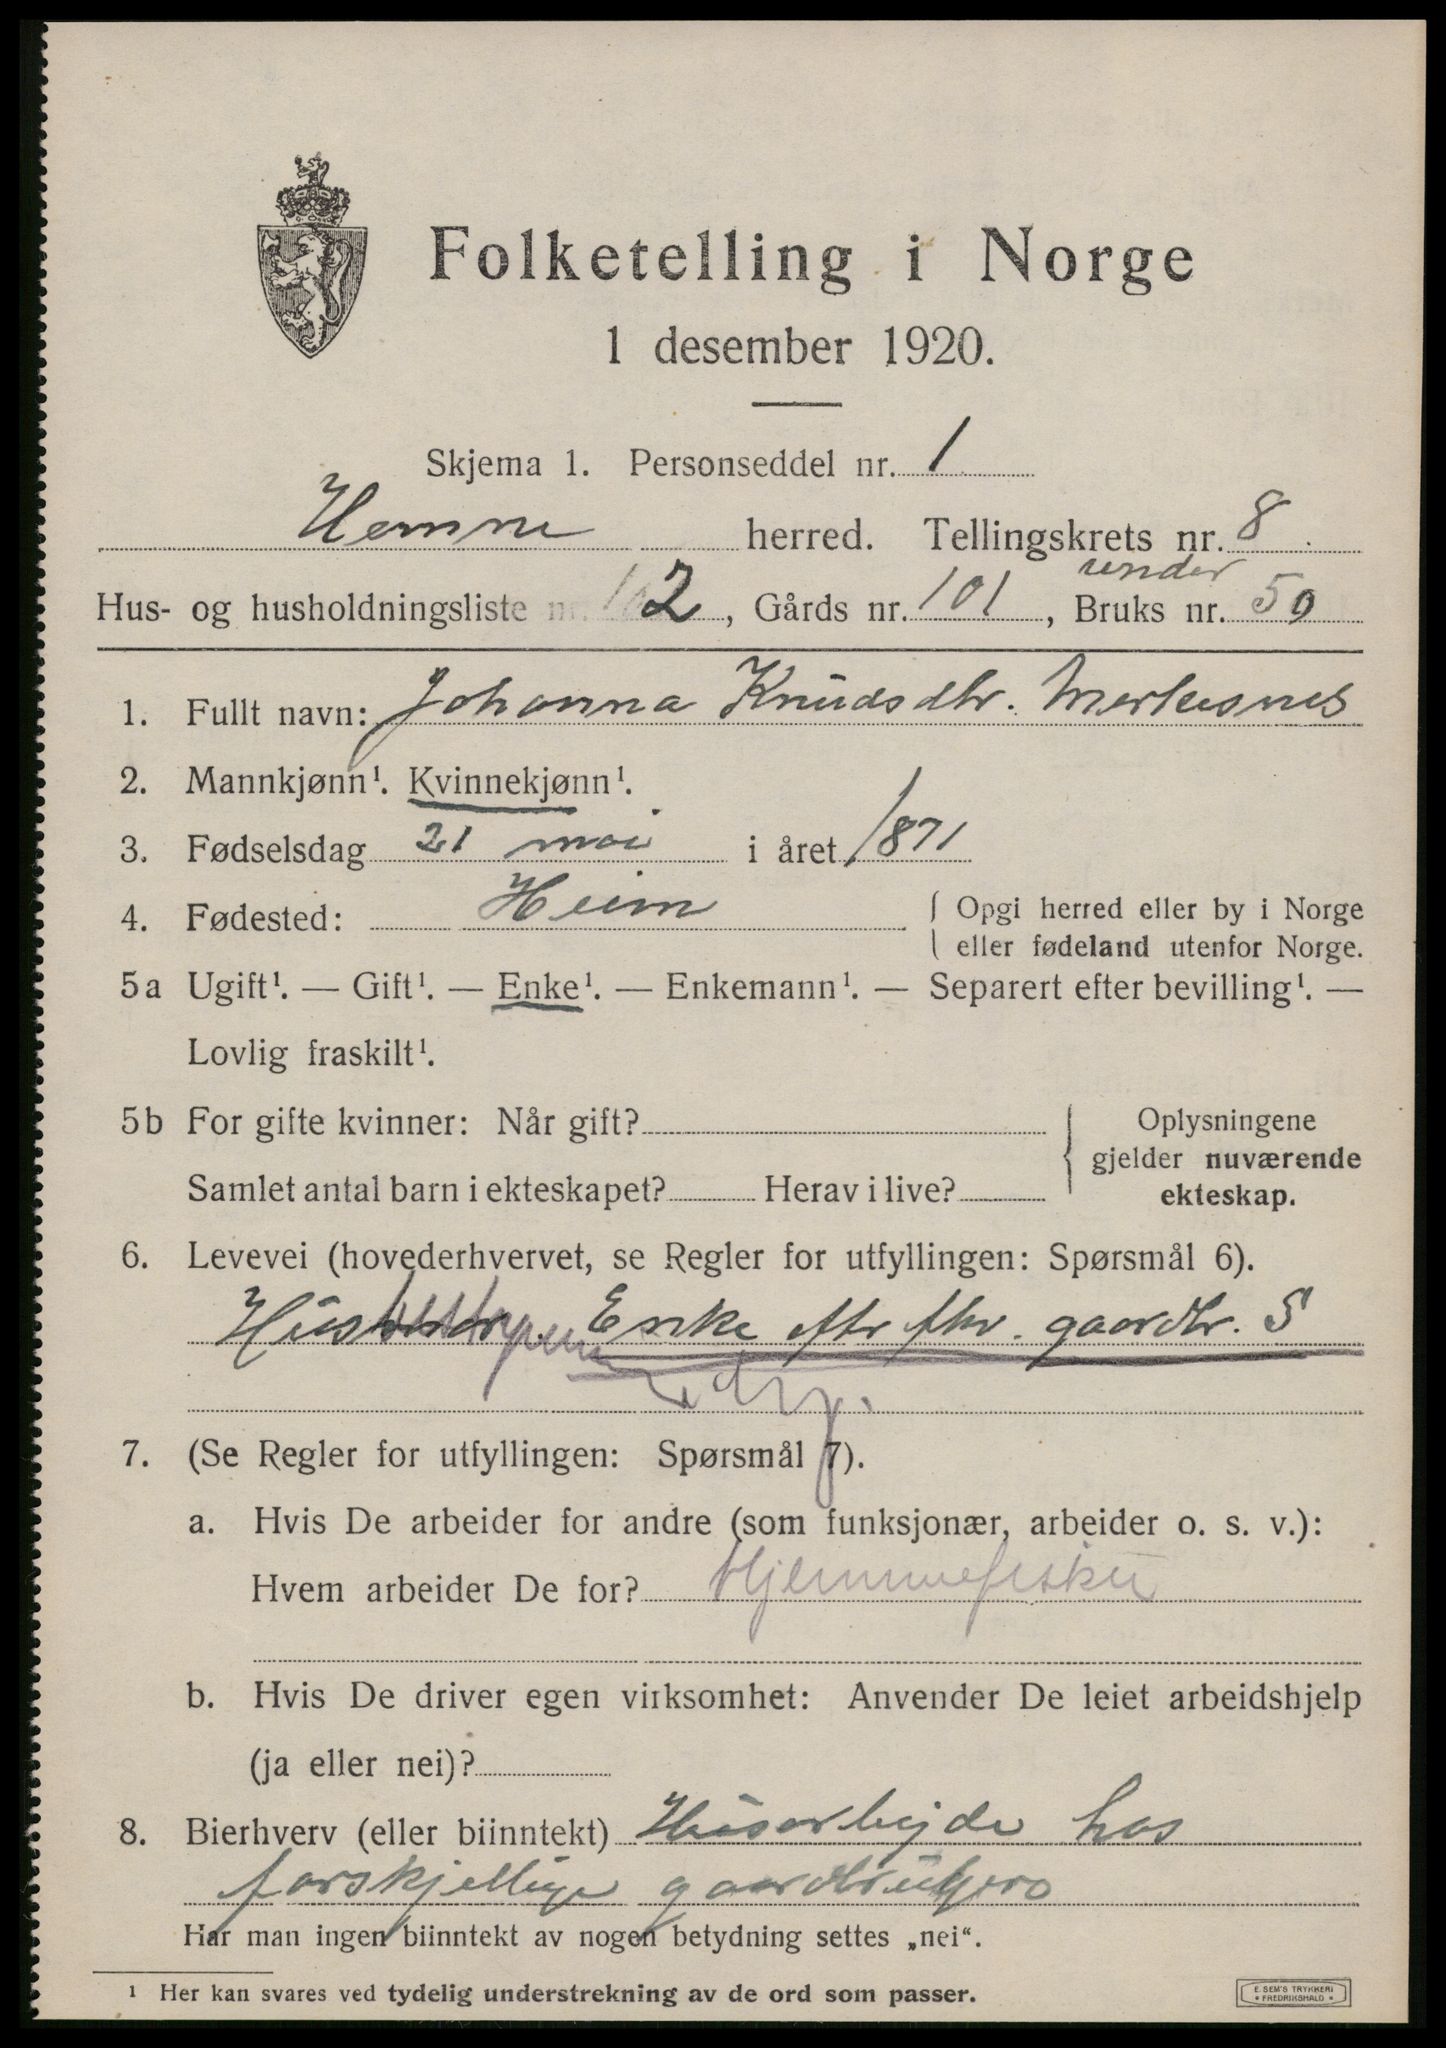 Folketelling i Norge
1 desember 1920.
Skjema 1. Personseddel nr. 1
Hemne herred. Tellingskrets nr. 8
under
Hus- og husholdningsliste nr. 102, Gårds nr. 101, Bruks nr. 50
1. Fullt navn: Johanna Knudsdtr. Merkesnes
2. Mannkjønn¹. Kvinnekjønn¹.
3. Fødselsdag 21 mai i året 1871
4. Fødested: Heim { Opgi herred eller by i Norge
eller fødeland utenfor Norge.
5a Ugift¹. — Gift¹. — Enke¹. — Enkemann¹. — Separert efter bevilling¹. —
Lovlig fraskilt¹.
5b For gifte kvinner: Når gift? { Oplysningene
gjelder nuværende
Samlet antal barn i ekteskapet? Herav i live? ekteskap.
6. Levevei (hovederhvervet, se Regler for utfyllingen: Spørsmål 6).
Enke eftr fhv. gaardbr. S
7. (Se Regler for utfyllingen: Spørsmål 7).
a. Hvis De arbeider for andre (som funksjonær, arbeider o. s. v.):
Hvem arbeider De for? Hjemmefiske
b. Hvis De driver egen virksomhet: Anvender De leiet arbeidshjelp
(ja eller nei)?
8. Bierhverv (eller biinntekt) Husarbejde hos
forskjellige gaardbrugero
Har man ingen biinntekt av nogen betydning settes „nei“.
¹ Her kan svares ved tydelig understrekning av de ord som passer.
E. SEM'S TRYKKERI
• FREDRIKSHALD •